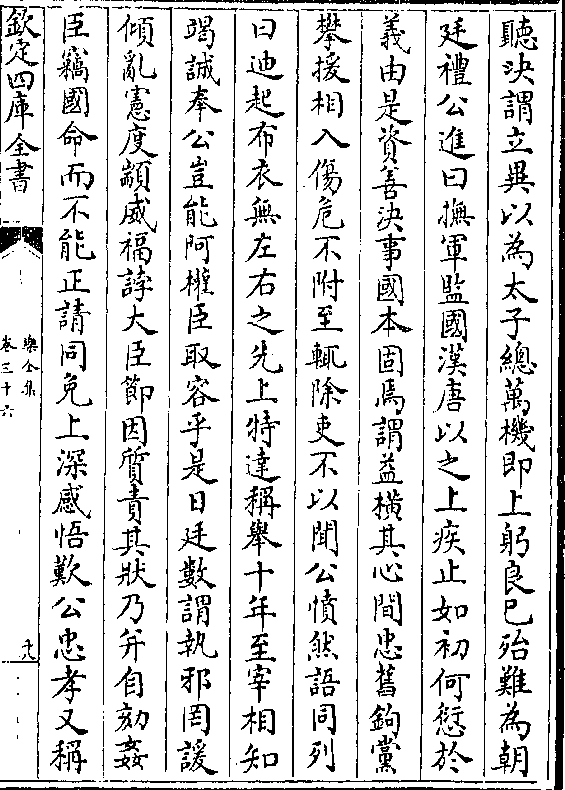 聽决謂立異以為太子總萬機即上躬良已殆難為朝
廷禮公進曰撫軍監國漢唐以之上疾止如初何愆於
義由是資善决事國本固焉謂益横其心間忠舊鉤黨
攀援相入傷危不附至輒除吏不以聞公憤然語同列
曰迪起布衣無左右之先上特達稱舉十年至宰相知
竭誠奉公豈能阿權臣取容乎是日廷數謂執邪罔諼
傾亂憲度顓威福誖大臣節因質責其狀乃并自劾姦
臣竊國命而不能正請同免上深感悟歎公忠孝又稱
欽定四庫全書
樂全集
卷三十六
十九